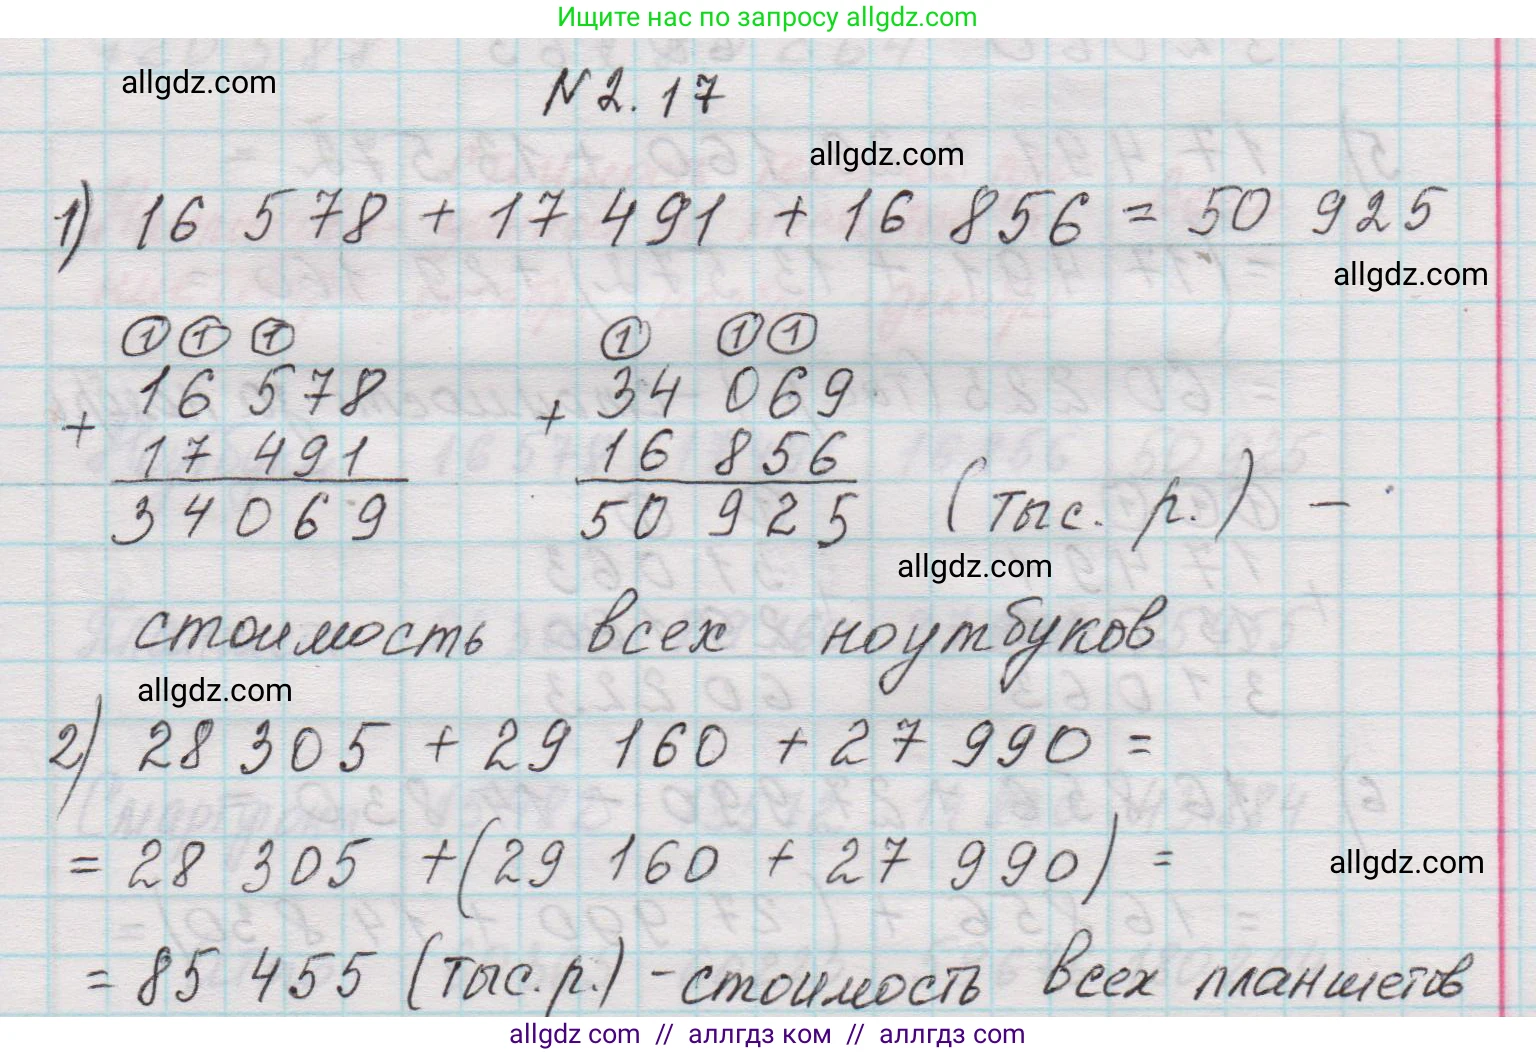 Ищите нас по запросу allgdz.com
allgdz.com
N 2. 17
allgdz.com
1) 16 578 + 17 491 + 16 856 = 50 925
allgdz.com
1 1 1 1 1 1
16 578 34 069
+ +
17 491 16 856
34 069 50 925 (тыс. р.) –
allgdz.com
стоимость всех ноутбуков
allgdz.com
2) 28 305 + 29 160 + 27 990 =
= 28 305 + (29 160 + 27 990) =
allgdz.com
= 85 455 (тыс. р.) – стоимость всех планшетов
allgdz com // аллгдз ком // allgdz com